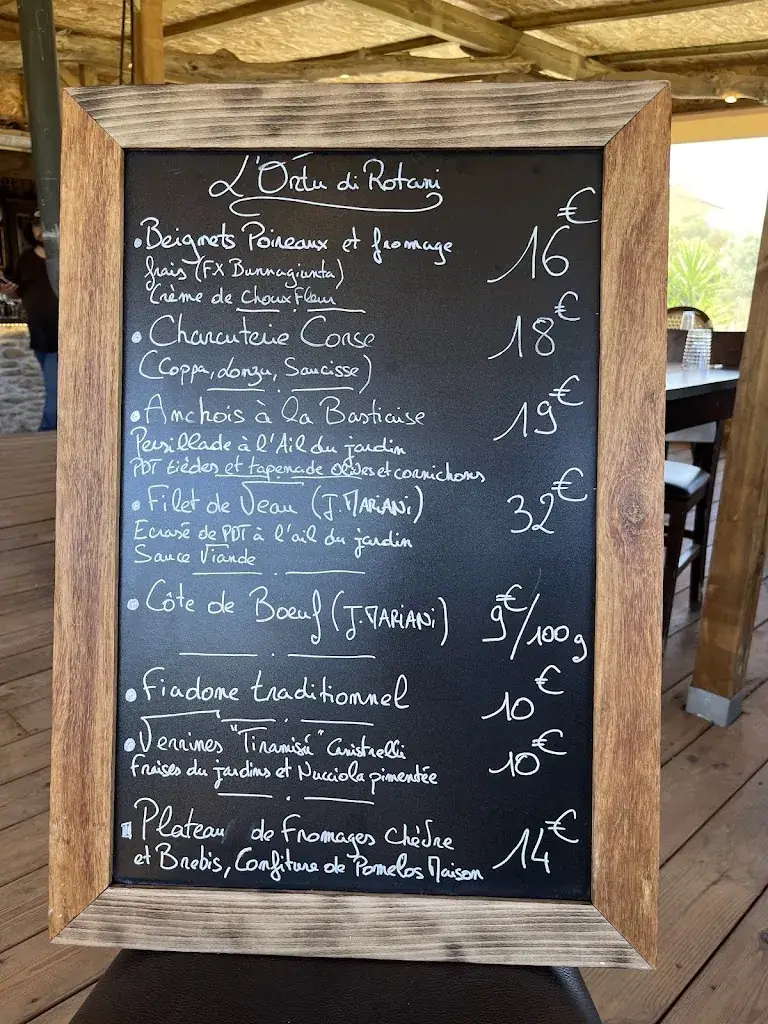 L'Ortu di Rotani
• Beignets Poireaux et fromage 16€
frais (FX Bunnagiunta)
Crème de Choux Fleur
• Charcuterie Corse 18€
(Coppa, Lonzu, Saucisse)
• Anchois à la Bastiaise 19€
Persillade à l'Ail du jardin
PDT tièdes et tapenade olives et cornichons
• Filet de Veau (J. MARIANi) 32€
Ecrasé de PDT à l'ail du jardin
Sauce Viande
• Côte de Boeuf (J. MARIANi) 9€/100g
• Fiadone traditionnel 10€
• Verrines "Tiramisù" Canistrelli 10€
fraises du jardins et Nucciola pimentée
Plateau de Fromages Chèvre 14€
et Brebis, Confiture de Pomelos Maison